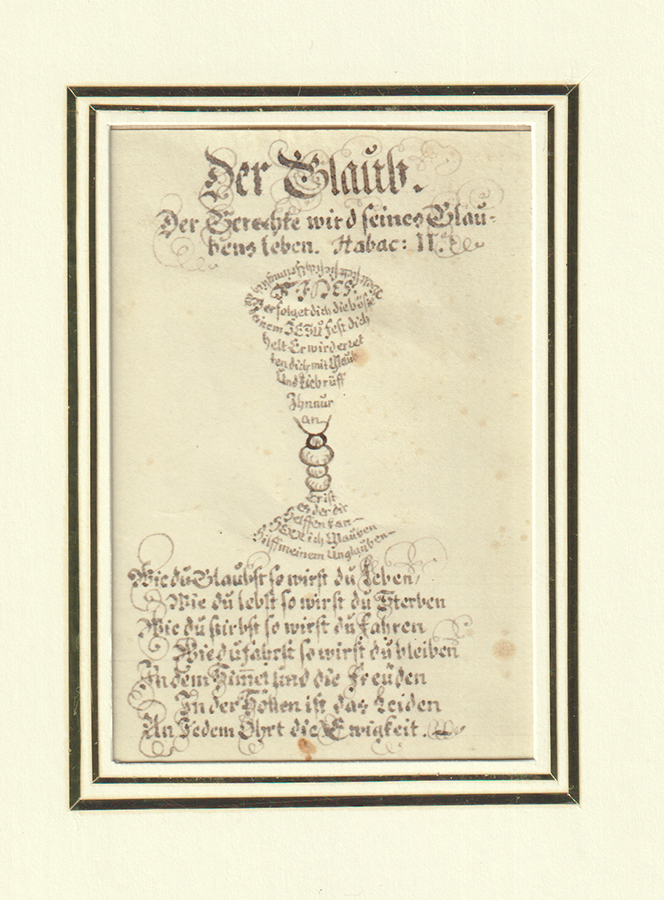 Der Glaub.
Der Gerechte wird seines Glau-
bens leben. Habac: II.
FIDES.
Verfolget dich die böse
deinem JESU fest dich
helt Er wird erret
ten dich mit Glaub
Und Lieb rüff
Ihn nur
an
Er ist
es der dir
Helffen kan
HERR ich Glauben
hilff meinem Unglauben
Wie du Glaubst so wirst du Leben/
Wie du lebst so wirst du Sterben
Wie du stirbst so wirst du fahren
Wie du fährst so wirst du bleiben
In dem Him̅el und die Freüden
In der Höllen ist das Leiden
An Jedem Ohrt die Ewigkeit.